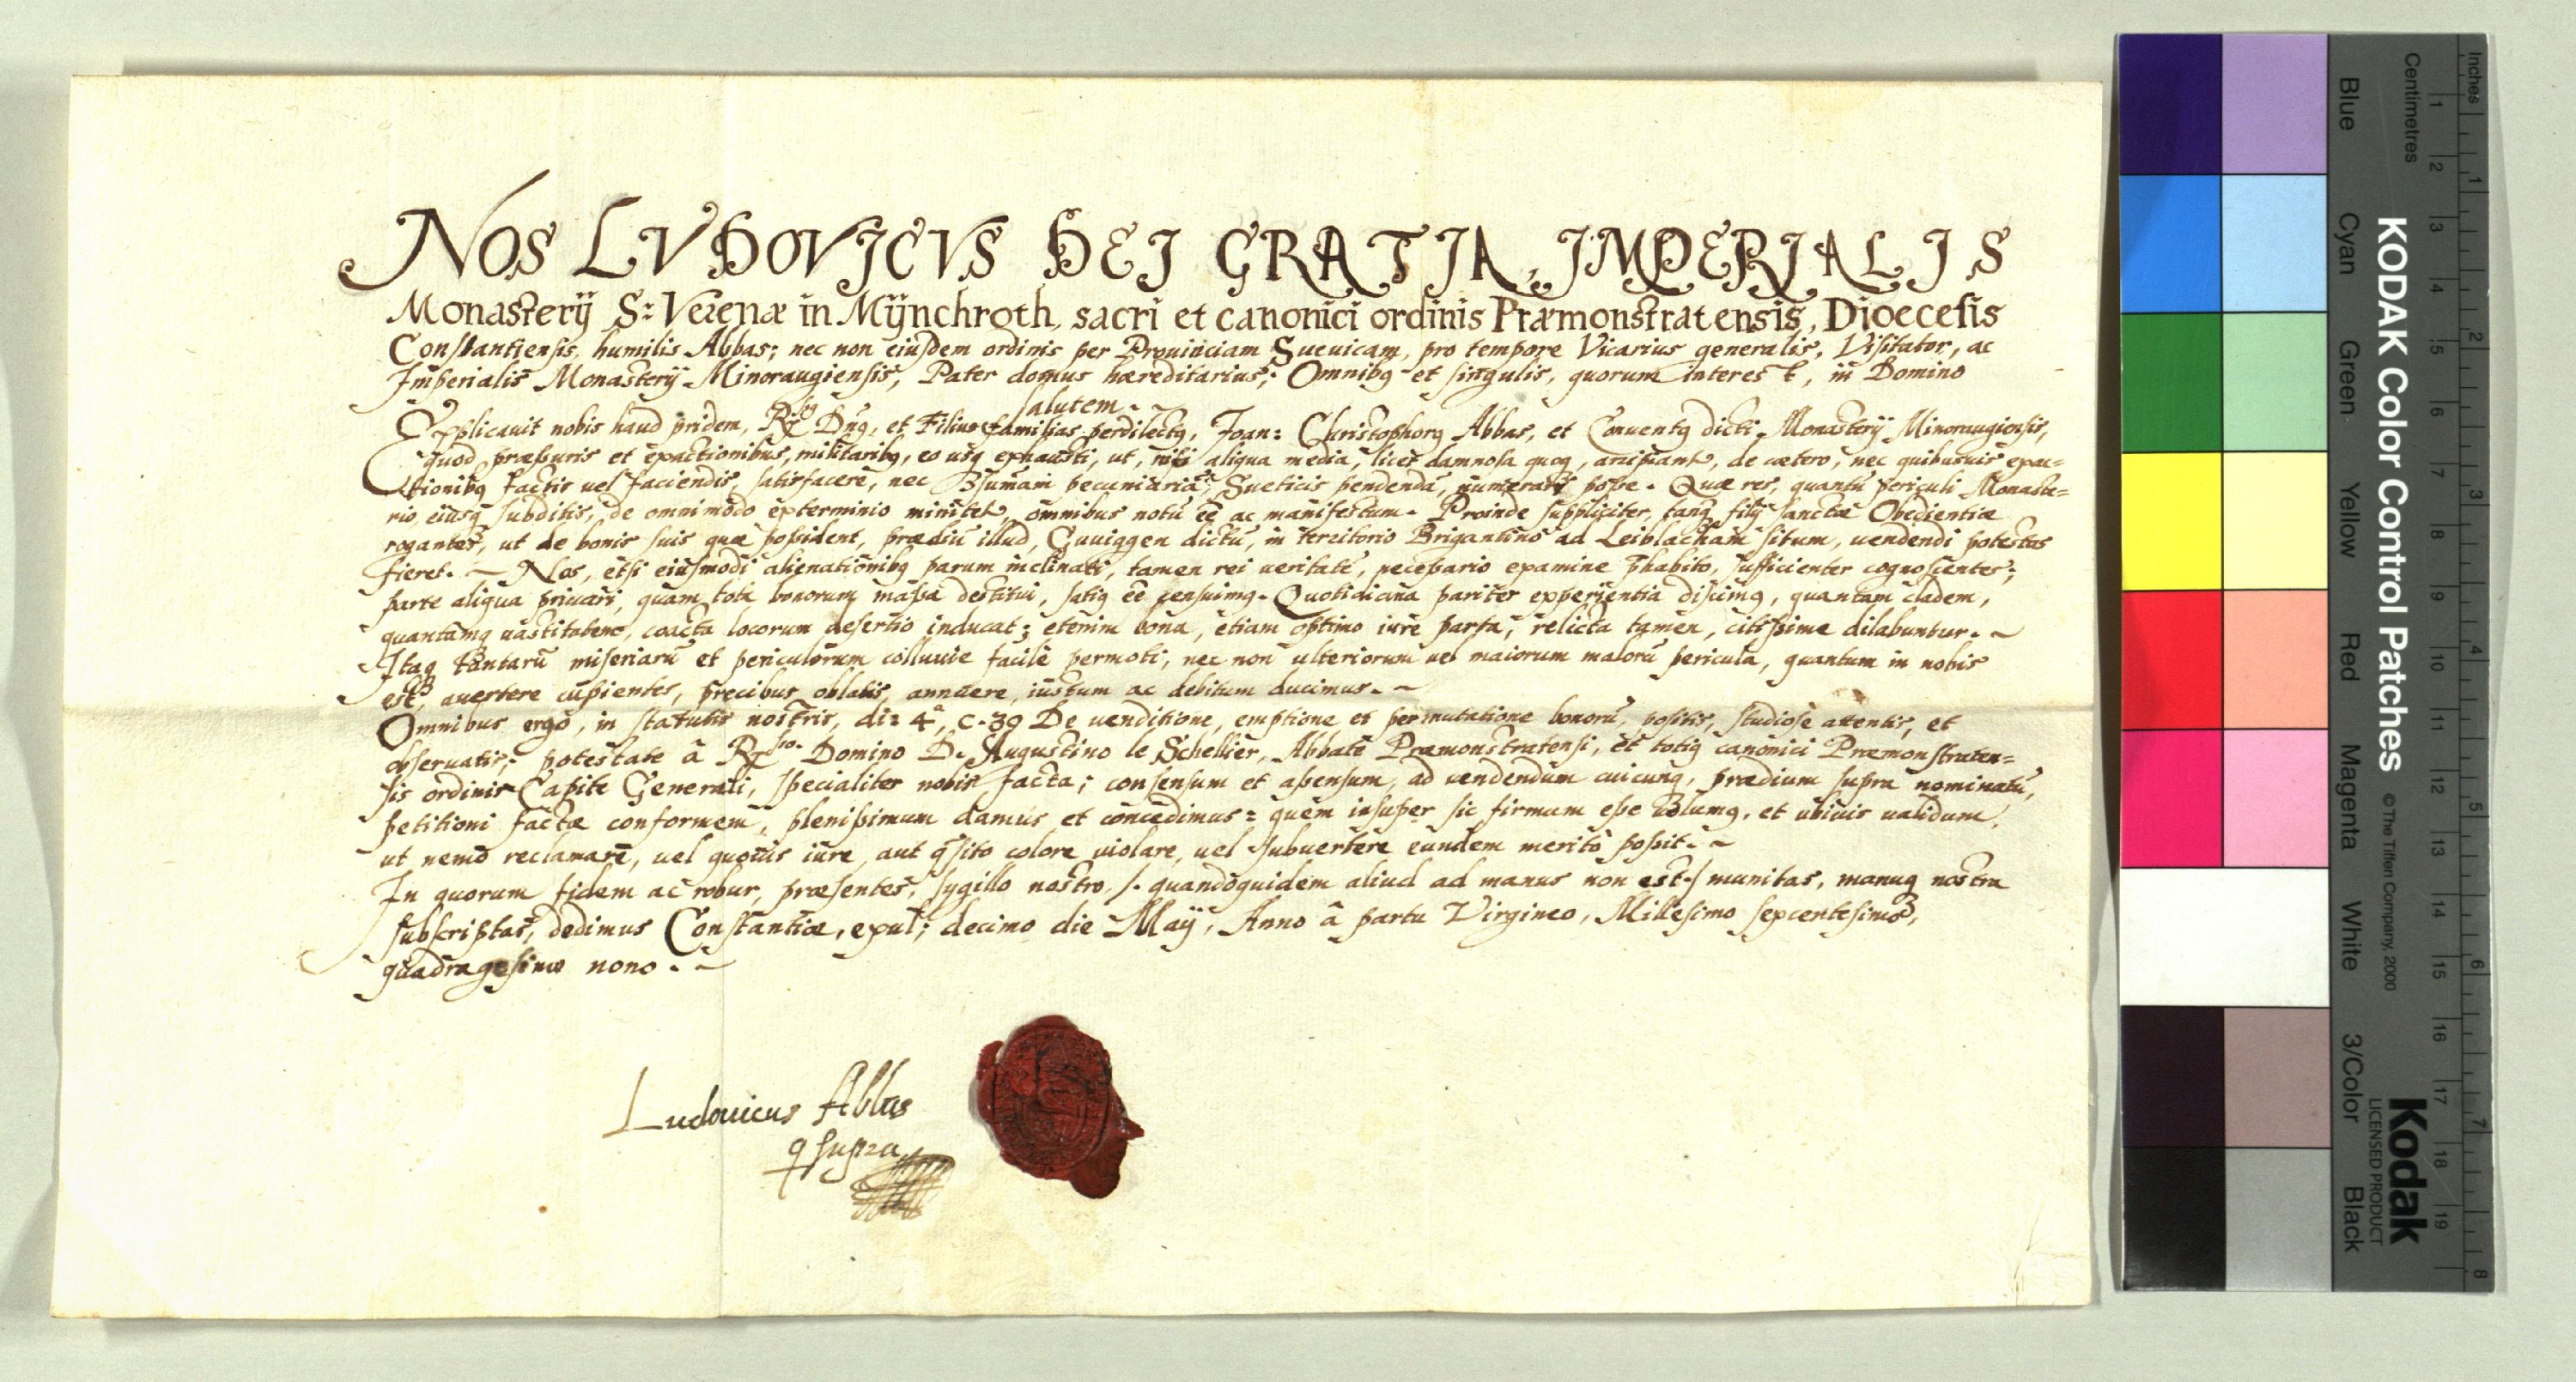 NOS LVDOVJCVS DEJ GRATJA, JMPERJALJS
Monasterÿ S: Verenæ in Mÿnchroth, sacri et canonici ordinis Præmonstratensis, Dioecesis
Constantiensis, humilis Abbas; nec non eiusdem ordinis per Prouinciam Sueuicam, pro tempore Vicarius generalis, Visitator, ac
Imperialis Monasterÿ Minoraugiensis, Pater domus hæreditarius; Omnibꝫ et singulis, quorum interest, in Domino
salutem. ~
Explicauit nobis haud pridem, Rx Dnꝫ, et Filius familias perdilectꝫ, Joan: Christophorꝫ Abbas, et Conuentꝫ dicti Monasterÿ Minoraugiensis,
quod præssuris et exactionibus, militaribꝫ, eo usꝗ exhausti, ut, nisi aliqua media, licet damnosa quoꝗ, arripiant, de cætero, nec quibusuis exac=
tionibꝫ factis uel faciendis, satisfacere, nec summam pecuniariā, Sueticis pendendā, numerare posse. Quæ res, quantū periculi Monaste=
rio, eiusꝗ subditis, de omnimodo exterminio minitet, omnibus notū eē ac manifestum. Proinde suppliciter, tanꝗ filÿ sanctæ Obedientiæ
rogantes, ut de bonis suis quæ possident, prædiū illud, Gwiggen dictū, in territorio Brigantino ad Leiblacham situm, uendendi potestas
fieret. ~ Nos, etsi eiusmodi alienationibꝫ parum inclinati, tamen rei ueritate, necessario examine p̄habito, sufficienter cognoscentes;
parte aliqua priuari, quam tota bonorum massa destitui, satiꝫ eē censuimꝫ. Quotidiana pariter experientia discimꝫ, quantam cladem,
quantamꝗ uastitatem, coacta locorum desertio inducat; etenim bona, etiam optimo iure parta, relicta tamen, citissime dilabuntur. ~
Itaꝗ tantarū miseriarū et periculorum colluuie facilè permoti, nec non ulteriorum uel maiorum malorū pericula, quantum in nobis
est, auertere cupientes, precibus oblatis, annuere, iustum ac debitum ducimus. ~
Omnibus ergò, in statutis nostris, di: 4ª, c. 39 De uenditione, emptione et permutatione bonorū, positis, studiosè attentis, et
obseruatis; potestate â Rx Domino D. Augustino le Schellier, Abbate Præmonstratensi, et totiꝫ canonici Præmonstraten=
sis ordinis Capite Generali, specialiter nobis facta; consensum et assensum, ad uendendum cuicunꝗ, prædium supra nominatū,
petitioni factæ conformem, plenissimum damus et concedimus: quem insuper sic firmum esse uolumꝫ, et ubiuis ualidum,
ut nemo reclamare, uel quouis iure, aut q̄sito colore uiolare, uel subuertere eundem meritò possit. ~
In quorum fidem ac robur, præsentes, sygillo nostro, /. quandoquidem aliud ad manus non est ./ munitas, manuꝗ nostra
subscriptas, dedimus Constantiæ, exul; decimo die Maÿ, Anno â partu Virgineo, Millesimo sexcentesimo,
quadragesimo nono. ~
Ludouicus Abbas
q supra
KODAK Color Control Patches
© The Tiffen Company, 2000
Kodak
LICENSED PRODUCT
Blue Cyan Green Yellow Red Magenta White 3/Color Black
Inches 1 2 3 4 5 6 7 8
Centimetres 1 2 3 4 5 6 7 8 9 10 11 12 13 14 15 16 17 18 19